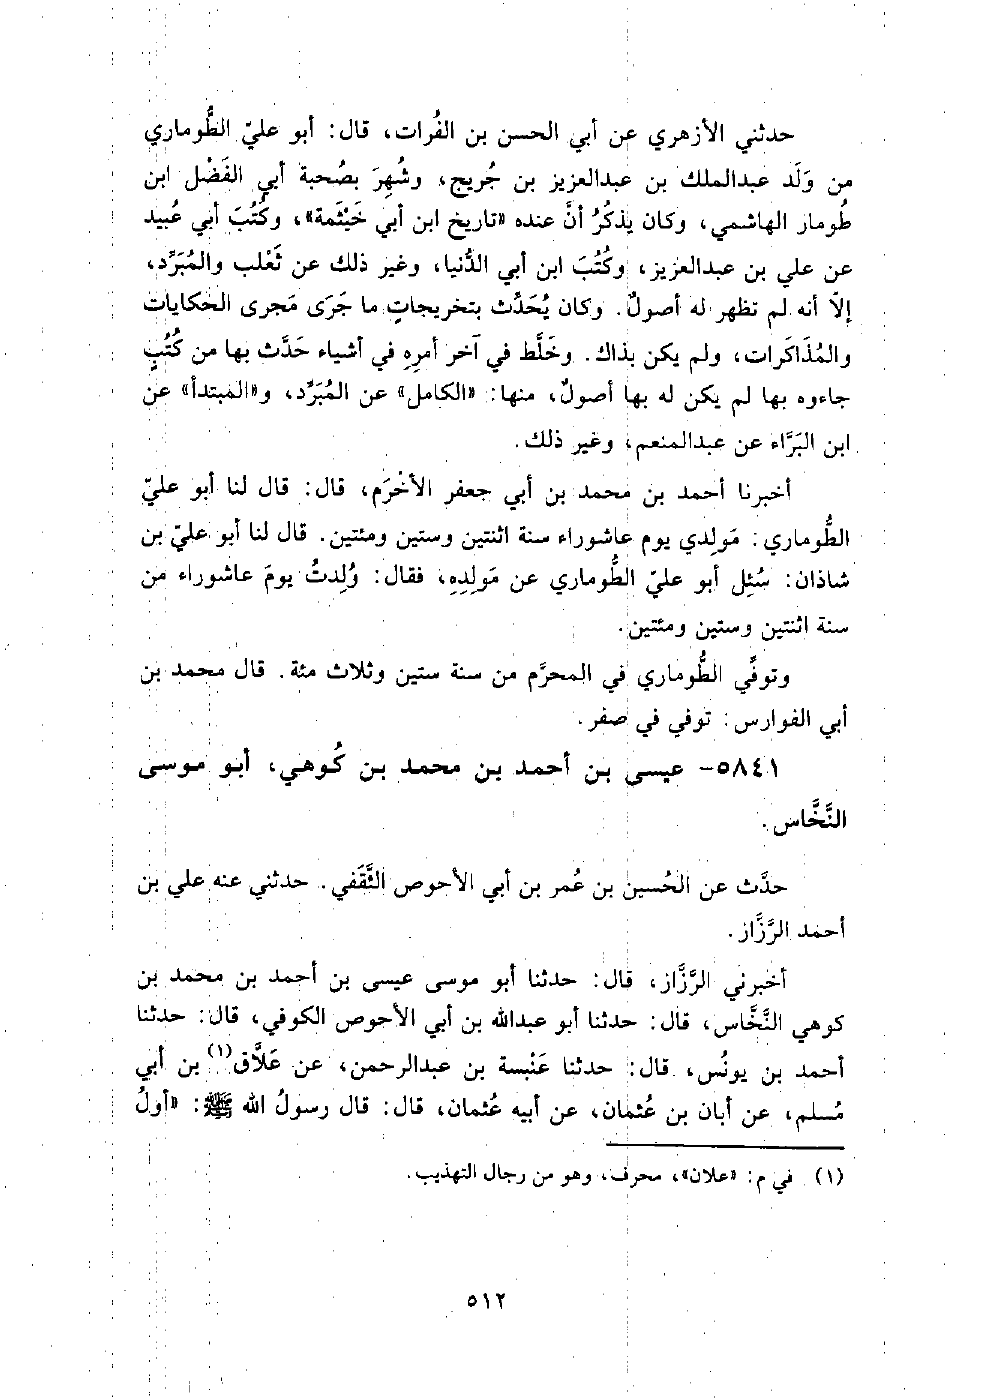 حدثني الأزهري عن أبي الحسن بن الفُرات، قال: أبو عليّ الطُّوماري
من وَلَد عبدالملك بن عبدالعزيز بن جُريج، وشُهِرَ بصُحبة أبي الفَضْل ابن
طُومار الهاشمي، وكان يذكُرُ أنَّ عنده «تاريخ ابن أبي خَيْثمة»، وكُتُبَ أبي عُبيد
عن علي بن عبدالعزيز، وكُتُبَ ابن أبي الدُّنيا، وغير ذلك عن ثَعْلب والمُبَرِّد،
إلاَّ أنه لم تظهر له أصولٌ. وكان يُحَدِّث بتخريجاتٍ ما جَرَى مَجرى الحكايات
والمُذَاكَرات، ولم يكن بذاك. وخَلَّط في آخر أمرِهِ في أشياء حَدَّث بها من كُتُبٍ
جاءوه بها لم يكن له بها أصولٌ، منها: «الكامل» عن المُبَرِّد، و«المبتدأ» عن
ابن البَرَّاء عن عبدالمنعم، وغير ذلك.
أخبرنا أحمد بن محمد بن أبي جعفر الأخْرَم، قال: قال لنا أبو عليّ
الطُّوماري: مَولِدي يوم عاشوراء سنة اثنتين وستين ومئتين. قال لنا أبو عليّ بن
شاذان: سُئِل أبو عليّ الطُّوماري عن مَولِدِهِ، فقال: وُلِدتُ يومَ عاشوراء من
سنة اثنتين وستين ومئتين.
وتوفِّي الطُّوماري في المحرَّم من سنة ستين وثلاث مئة. قال محمد بن
أبي الفوارس: توفي في صفر.
٥٨٤١- عيسى بن أحمد بن محمد بن كُوهي، أبو موسى
النَّخَّاس.
حدَّث عن الحُسين بن عُمر بن أبي الأحوص الثَّقَفي. حدثني عنه علي بن
أحمد الرَّزَّاز.
أخبرني الرَّزَّاز، قال: حدثنا أبو موسى عيسى بن أحمد بن محمد بن
كوهي النَّخَّاس، قال: حدثنا أبو عبدالله بن أبي الأحوص الكوفي، قال: حدثنا
أحمد بن يونُس، قال: حدثنا عَنْبسة بن عبدالرحمن، عن عَلَّاق(١) بن أبي
مُسلم، عن أبان بن عُثمان، عن أبيه عُثمان، قال: قال رسولُ الله ﷺ: «أولُ
(١) في م: «علان»، محرف، وهو من رجال التهذيب.
٥١٢